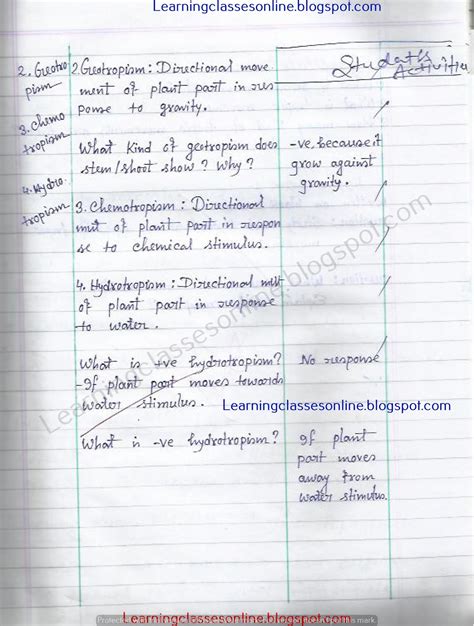 Learningclassesonline.blogspot.com
Student's
Activities
2. Geotro
pism
3. Chemo
tropism
4. Hydro
tropism
2. Geotropism : Directional move
ment of plant part in res
ponse to gravity.
What kind of geotropism does
stem/shoot show ? Why ?
-ve, because it
grow against
gravity.
3. Chemotropism : Directional
mut of plant part in respon
se to chemical stimulus.
4. Hydrotropism : Directional mut
of plant part in response
to water.
What is +ve hydrotropism?
No response
- If plant part moves towards
water stimulus.
Learningclassesonline.blogspot.com
What is -ve hydrotropism?
If plant
part moves
away from
water stimulus.
Learningclassesonline.blogspot.com
Learningclassesonline.blogspot.com